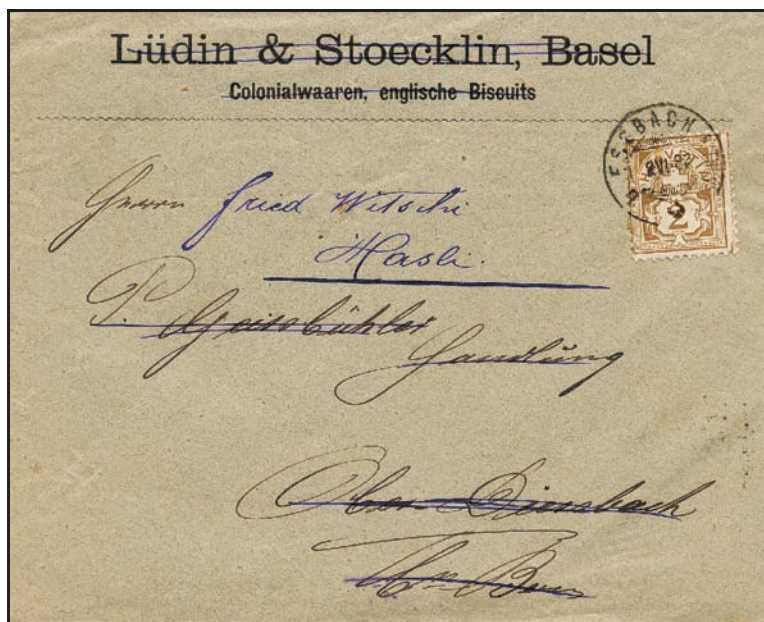 Lüdin & Stoecklin, Basel
Colonialwaaren, englische Biscuits
Herrn Fried Witschi
Hasli.
P. Geissbühler
Handlung
Ober-Diessbach
Ct. Bern
2